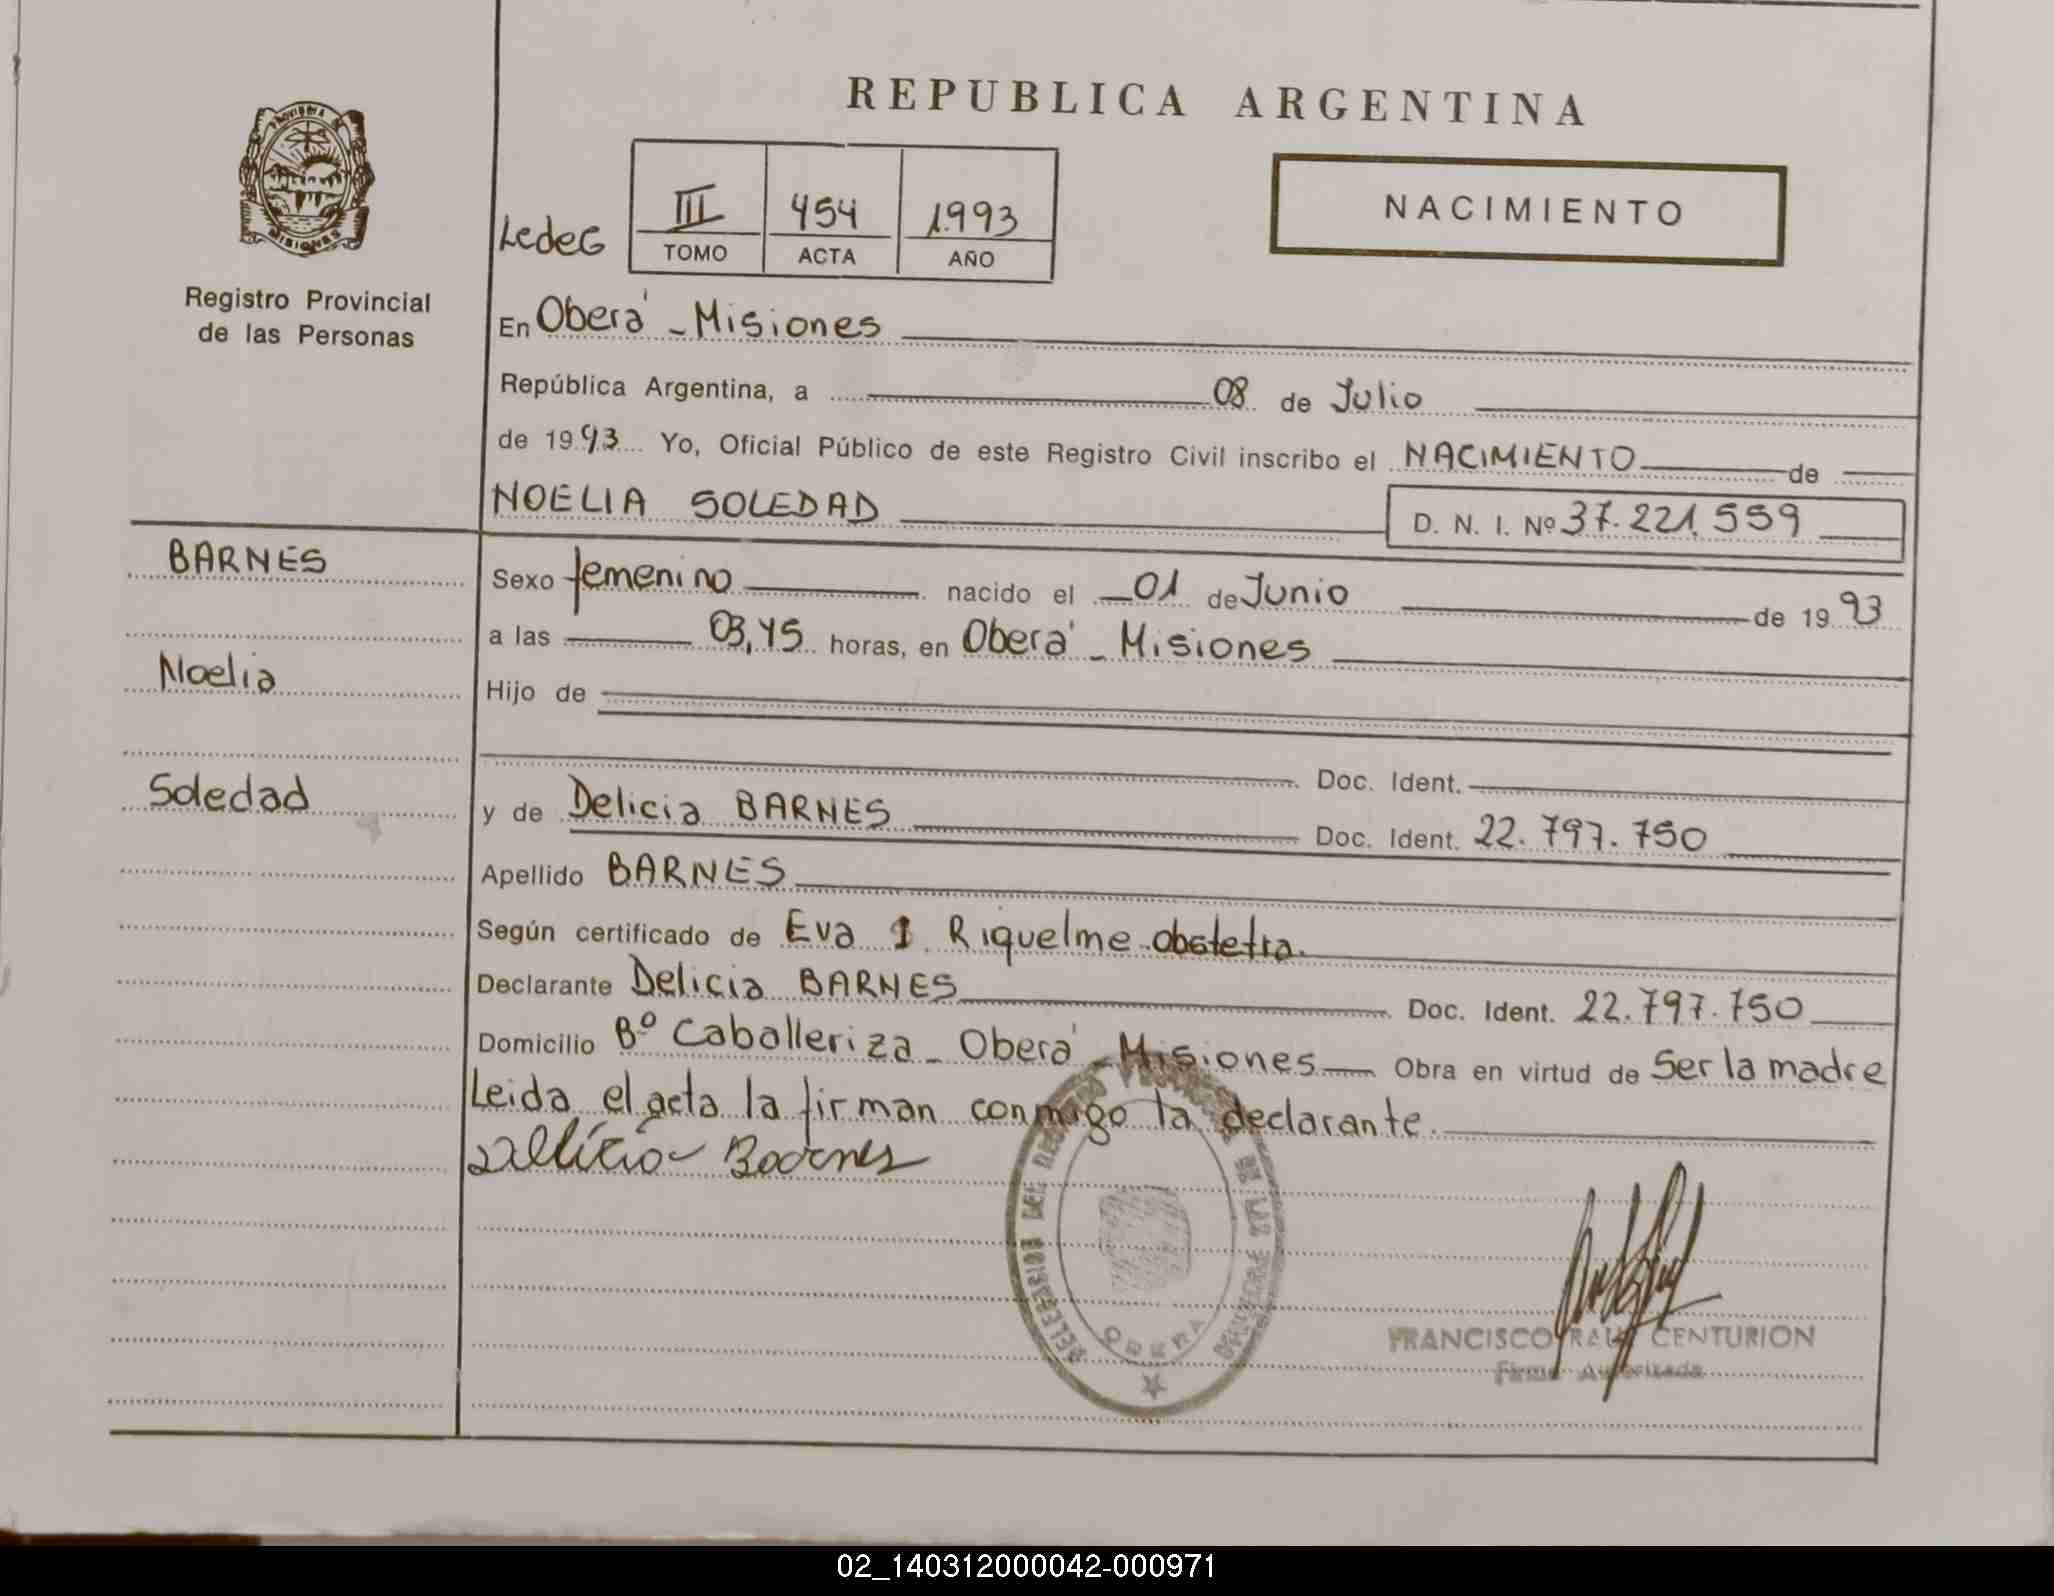 REPUBLICA ARGENTINA
PROVINCIA DE
MISIONES
Registro Provincial
de las Personas
LedeG
III 454 1.993
TOMO ACTA AÑO
NACIMIENTO
En Oberá - Misiones
República Argentina, a 08 de Julio
de 1993 Yo, Oficial Público de este Registro Civil inscribo el NACIMIENTO de
NOELIA SOLEDAD D. N. I. Nº 37.221.559
BARNES
Noelia
Soledad
Sexo femenino nacido el 01 de Junio de 1993
a las 03,45 horas, en Oberá - Misiones
Hijo de
Doc. Ident.
y de Delicia BARNES Doc. Ident. 22.797.750
Apellido BARNES
Según certificado de Eva I Riquelme obstetra.
Declarante Delicia BARNES Doc. Ident. 22.797.750
Domicilio Bº Caballeriza - Oberá - Misiones Obra en virtud de Ser la madre
Leida el acta la firman conmigo la declarante.
Delicia Barnes
DELEGACION DEL REGISTRO DE LAS PERSONAS
OBERA
FRANCISCO RAUL CENTURION
Firma Autorizada
02_140312000042-000971